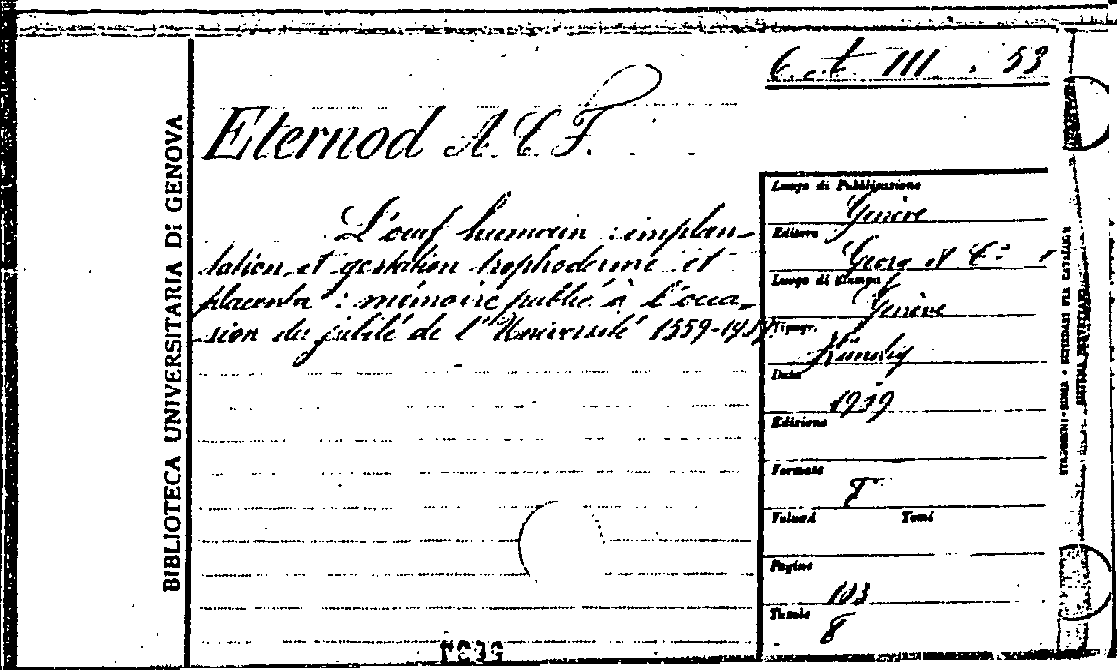 6. t III . 53
BIBLIOTECA UNIVERSITARIA DI GENOVA
Eternod A. C. F.
L'oeuf humain : implan-
tation et gestation trophoderme et
placenta : mémoire publié à l'occa-
sion du jubilé de l'Université 1559-
Luogo di Pubblicazione
Genève
Editore
Georg et Cie
Luogo di Stampa
Genève
Tipogr.
Kündig
Data
1939
Edizione
Formato
8
Volumi Tomi
Pagine
103
Tavole
8